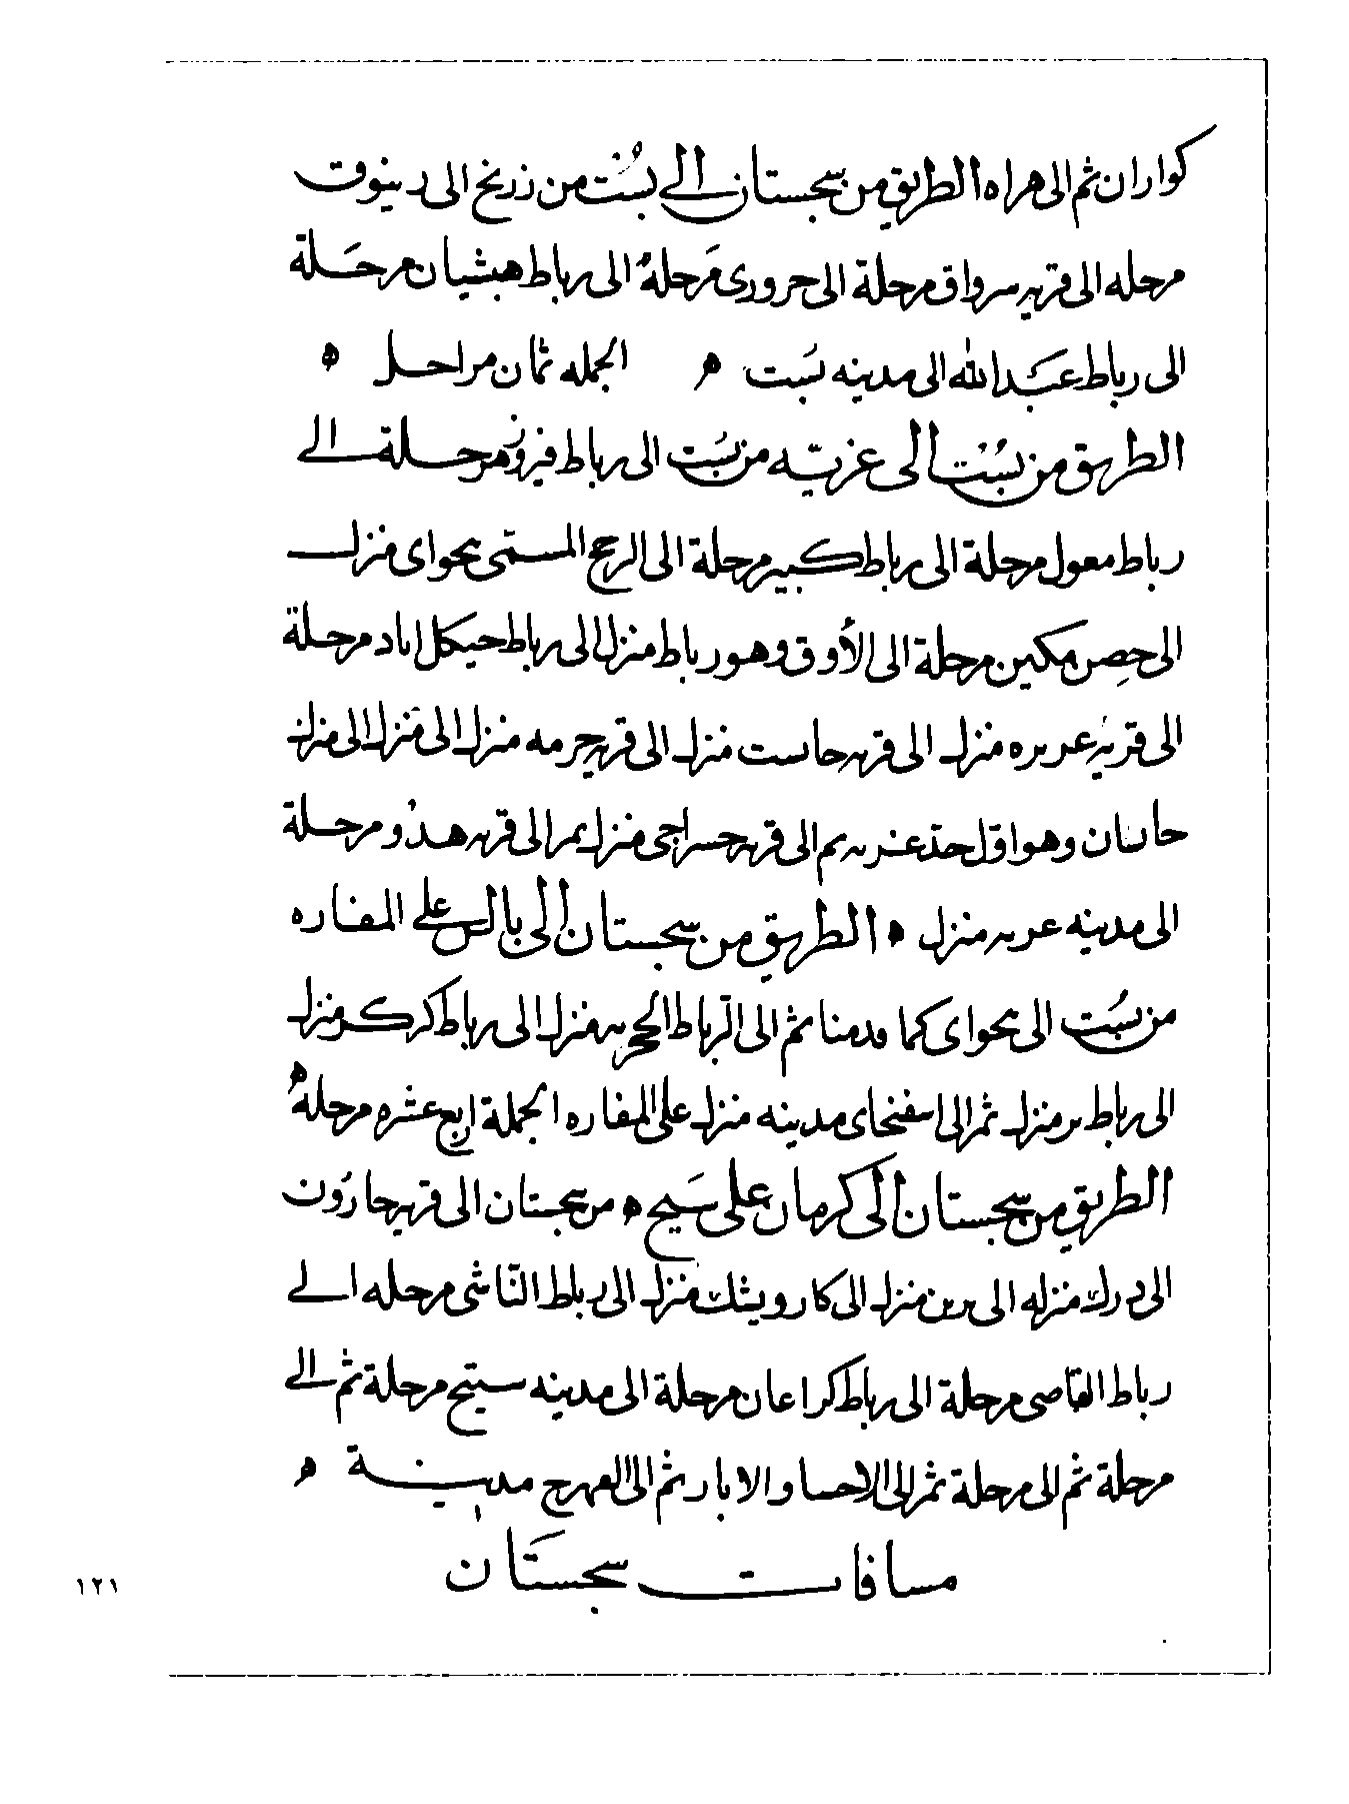 كواران ثم الى هراه الطريق من سجستان الى بُسْت من زرنج الى رنبوق
مرحله الى قريه سرواق مرحلة الى حرورى مَرحلةٌ الى رباط هبشيان مرحَلة
الى رباط عبَد الله الى مدينه بُست ه الجمله ثمان مراحل ه
الطريق من بُسْت الى غزنيّه من بُسَت الى رباط فيروز مرحلة الى
رباط معول مرحلة الى رباط كبير مرحلة الى الرحج المسمّى بحواى منزل
الى حِصن مكين مرحلة الى الأوق وهو رباط منزل الى رباط حيكل اباد مرحلة
الى قريه عربره منزل الى قريه حاست منزل الى قريه جرمه منزل الى منزل الى منزل
حاسان وهو اوّل حدّ غزنه ثم الى قريه حسراجى منزل ثم الى قريه هدُو مرحلة
الى مدينه غزنه منزل ه الطريق من سجستان الى بالس على المفازه
من بُسَت الى بحواى كما قدمنا ثم الى الرّباط الحجريه منزل الى رباط كركر منزل
الى رباط بر منزل ثم الى اسفنجاى مدينه منزل على المفازه الجملة اربع عشره مرحلةً ه
الطريق من سجستان الى كرمان على سَيج ه من سجستان الى قريه جارُون
الى درك منزله الى برين منزل الى كارونيشك منزل الى رباط النّاشى مرحله الى
رباط القاضى مرحلة الى رباط كراغان مرحلة الى مدينه سنيج مرحلة ثم الى
مرحلة ثم الى مرحلة ثم الى الاحسا والابار ثم الى الفهرج مدينة ه
مسافات سجستَان
١٢١